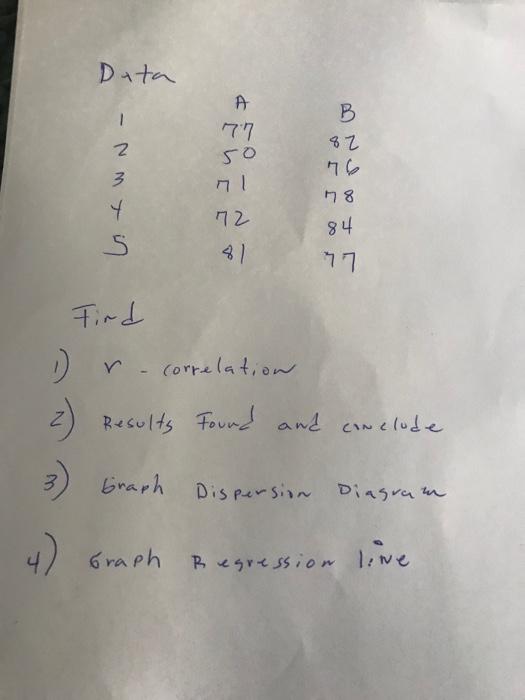 Data
A B
1 77 82
2 50 76
3 71 78
4 72 84
5 81 77
Find
1) r - correlation
2) Results Found and conclude
3) Graph Dispersion Diagram
4) Graph Regression line